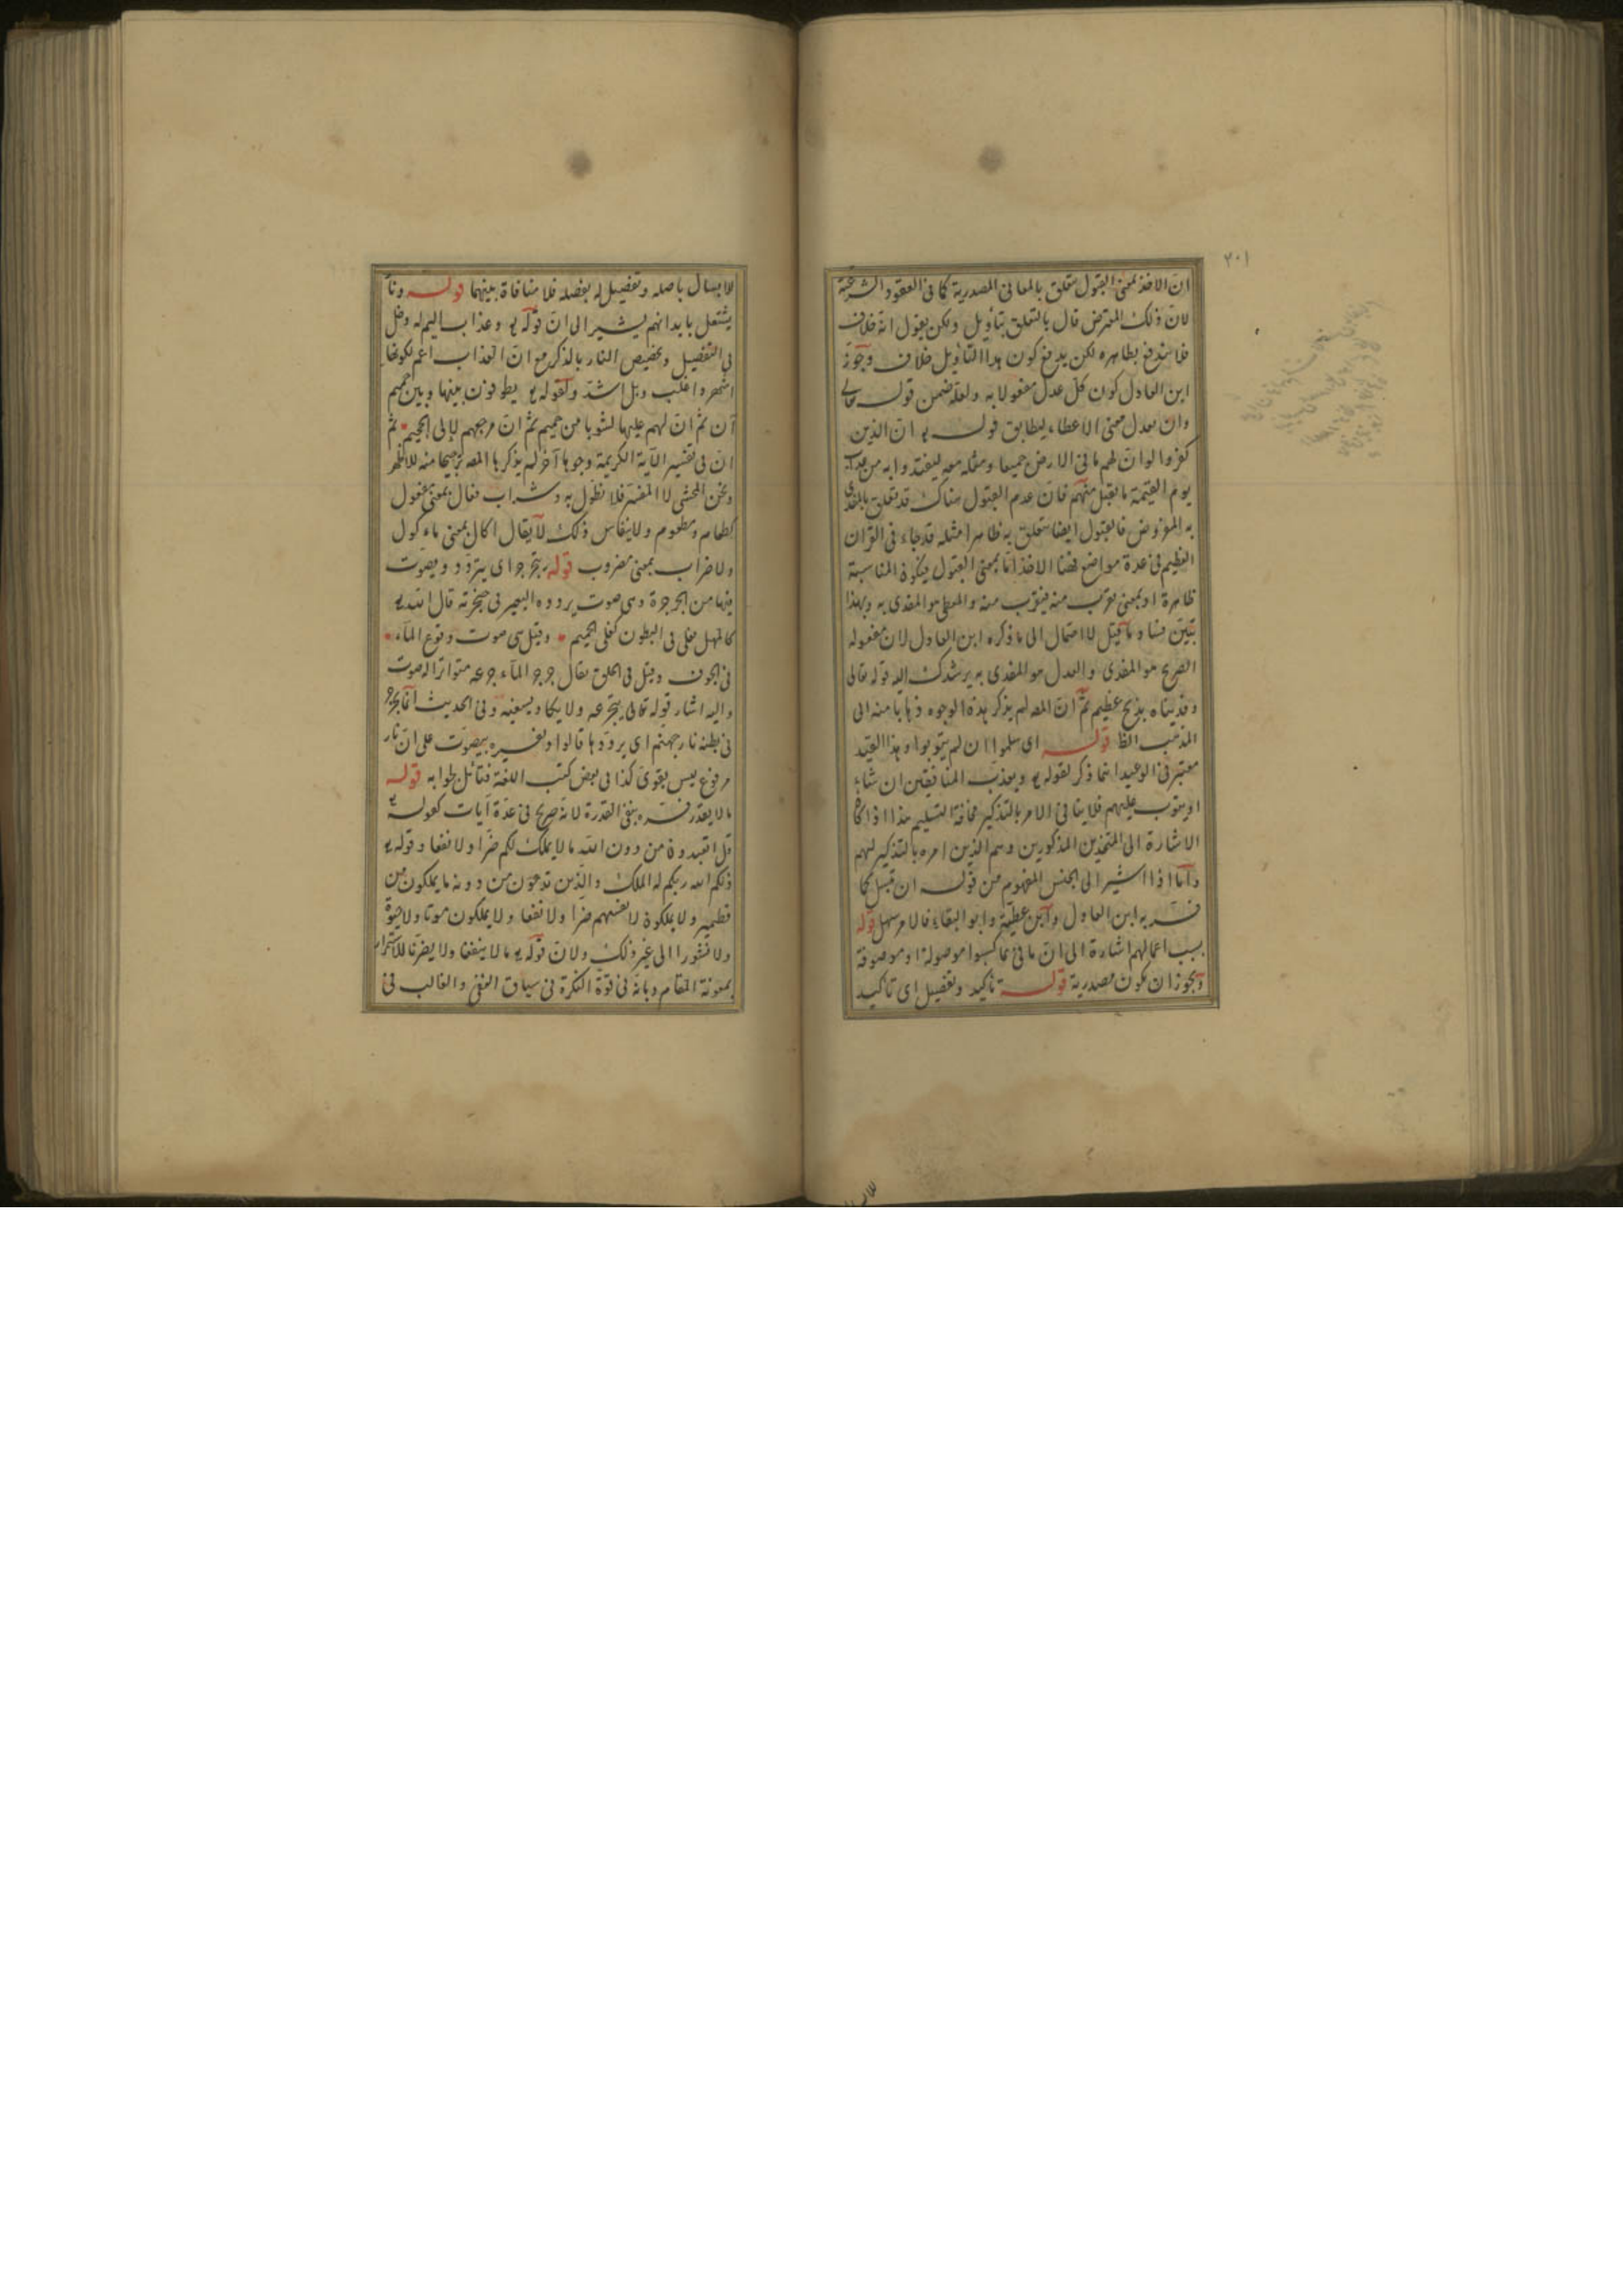 ٣٠١
ان الاخذ بمعنى القبول متعلق بالمعانى المصدرية كما فى العقود الشرعية
لان ذلك المعترض قال بالتعلق بتأويل ولكن يقول انه خلاف
فلا يندفع بظاهره لكن يدفع كون هذا التأويل خلاف وجوز
ابن العادل كون كل عدل مفعولا به ولعله ضمن قوله تعالى
وان تعدل معنى الاعطاء ليطابق قوله تع ان الذين
كفروا لو ان لهم ما فى الارض جميعا ومثله معه ليفتدوا به من عذاب
يوم القيمة ما تقبل منهم فان عدم القبول هناك قد تعلق بالمفدى
به المفروض فالقبول ايضا يتعلق به ظاهرا مثله قد جاء فى القرآن
العظيم فى عدة مواضع فهنا الاخذ اما بمعنى القبول فيكون المناسبة
ظاهرة او بمعنى يقرب منه فيقرب منه والمعطى هو المفدى به وبهذا
تبين فساد ما قيل لا احتمال الى ما ذكره ابن العادل لان مفعوله
الصريح هو المفدى والعدل هو المفدى به يرشدك اليه قوله تعالى
وفديناه بذبح عظيم ثم ان المصه لم يذكر هذه الوجوه ذهابا منه الى
المذهب الظا قوله اى سلموا ان لم يتوبوا وهذا القيد
معتبر فى الوعيد انما ذكر لقوله تع ويعذب المنافقين ان شاء
او يتوب عليهم فلا ينافى الامر بالتذكير مخافة التسليم هذا اذا كان
الاشارة الى المتخذين المذكورين وهم الذين امره بالتذكير لهم
واما اذا اشير الى الجنس المفهوم من قوله ان تبسل كما
فسر به ابن العادل وابن عطية وابو البقاء فالامر سهل قوله
بسبب اعمالهم اشارة الى ان ما فى بما كسبوا موصولة او موصوفة
ويجوز ان تكون مصدرية قوله تاكيد وتفصيل اى تاكيد
للابسال باصله وتفصيل له بفصله فلا منافاة بينهما قوله ونار
يشتعل بابدانهم يشير الى ان قوله تع وعذاب اليم له دخل
فى التفصيل وتخصيص النار بالذكر مع ان العذاب اعم لكونها
اشهر واغلب وبل اشد ولقوله تع يطوفون بينها وبين حميم
آن ثم ان لهم عليها لشوبا من حميم ثم ان مرجعهم لإلى الجحيم ثم
ان فى تفسير الآية الكريمة وجوها آخر لم يذكرها المصه ترجيحا منه للاظهر
ونحن المحشى لا المفسر فلا نطول به وشراب فعال بمعنى مفعول
كطعام ومطعوم ولا ينقاس ذلك لا يقال اكال بمعنى ماءكول
ولا ضراب بمعنى مضروب قوله يتجرجر اى يتردد ويصوت
فيها من الجرجرة وهى صوت يردده البعير فى حنجرته قال الله تع
كالمهل يغلى فى البطون كغلى الحميم وقيل هى صوت وقوع الماء
فى الجوف وقيل فى الحلق يقال جرجر الماء جرعه متواترا له صوت
واليه اشار قوله تعالى يتجرعه ولا يكاد يسيغه وفى الحديث انما يجرجر
فى بطنه نار جهنم اى يرددها قالوا وتفسيره بيصوت على ان نار
مرفوع ليس بقوى كذا فى بعض كتب اللغة فتأمل لجوابه قوله
ما لا يقدر فسره بنفى القدرة لانه صريح فى عدة آيات كقوله تع
قل اتعبدون من دون الله ما لا يملك لكم ضرا ولا نفعا وقوله تع
ذلكم الله ربكم له الملك والذين تدعون من دونه ما يملكون من
قطمير ولا يملكون لانفسهم ضرا ولا نفعا ولا يملكون موتا ولا حيوة
ولا نشورا الى غير ذلك ولان قوله تع ما لا ينفعنا ولا يضرنا للاستمرار
بمعونة المقام وبانه فى قوة النكرة فى سياق النفى والغالب فى